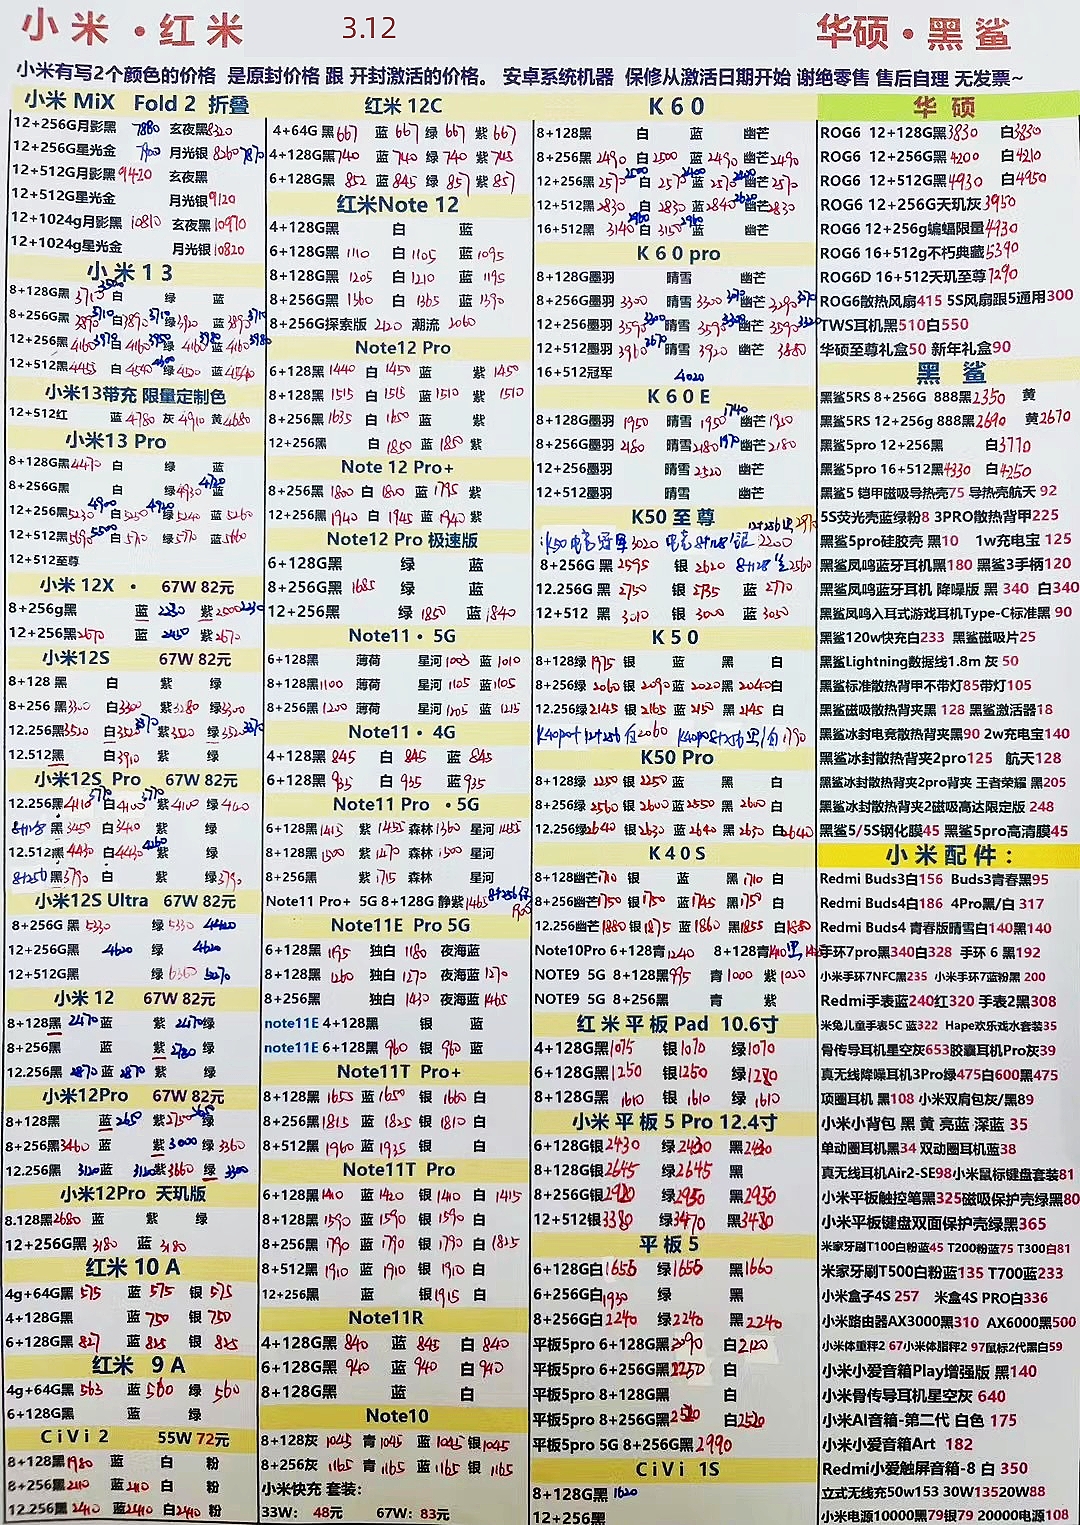 小米·红米
3.12
华硕·黑鲨
小米有写2个颜色的价格 是原封价格 跟 开封激活的价格。 安卓系统机器 保修从激活日期开始 谢绝零售 售后自理 无发票~
小米 MiX Fold 2 折叠
12+256G月影黑 7880 玄夜黑8320
12+256G星光金 7900 月光银8260 7870
12+512G月影黑9420 玄夜黑
12+512G星光金 月光银9120
12+1024g月影黑 10810 玄夜黑10970
12+1024g星光金 月光银10820
小米13
8+128G黑3710 白 绿 蓝
8+256G黑3890 3710 白3890 3710 绿3920 蓝3890 3710
12+256黑4160 3970 白4160 3950 绿4160 3980 蓝4160 3980
12+512黑4455 白4540 4300 绿4520 蓝4540
小米13带充 限量定制色
12+512红 蓝4780 灰4910 黄4680
小米13 Pro
8+128G黑4470 白 绿 蓝
8+256G黑 白 绿4930 4720 蓝
12+256黑5230 4900 白5250 4920 绿5240 蓝5260
12+512黑5690 5500 白5710 绿5710 蓝5660
12+512至尊
小米 12X · 67W 82元
8+256g黑 蓝 2230 紫2500 2230
12+256黑2670 蓝 2450 紫2670
小米12S 67W 82元
8+128 黑 白 紫 绿
8+256 黑3300 白3300 紫3380 绿3300
12.256黑3520 白3525 3370 紫3518 绿3520 3370
12.512黑 白3910 紫 绿
小米12S Pro 67W 82元
12.256黑4110 3770 白4100 3770 紫4100 绿4160
8+128 黑3450 白3440 紫 绿
12.512黑4430 白4430 4260 紫 绿
8+256 黑3790 白 紫 绿3790
小米12S Ultra 67W 82元
8+256G 黑 5330 绿 5330 4420
12+256G黑 4620 绿 4620
12+512G黑 绿 6360 5270
小米 12 67W 82元
8+128黑 2470 蓝 紫 2470 绿
8+256黑 蓝 紫 2780 绿
12.256黑 2870 蓝 2870 紫 绿
小米12Pro 67W 82元
8+128黑 蓝 2650 紫2750 2650 绿
8+256黑3460 蓝 紫 3000 绿 3360
12.256黑 3120 蓝 3120 紫3660 绿 3300
小米12Pro 天玑版
8.128黑2680 蓝 紫 绿
12+256G黑 3180 蓝 3180
红米 10 A
4g+64G黑 575 蓝 575 银 575
4+128G黑 蓝 750 银 750
6+128G黑 827 蓝 825 银 825
红米 9 A
4g+64G黑 563 蓝 560 绿 560
6+128G黑 蓝 绿
CiVi 2 55W 72元
8+128黑1980 蓝 白 粉
8+256黑2110 蓝2110 白 粉
12.256黑 2410 蓝2410 白2410 粉
红米 12C
4+64G 黑 667 蓝 667 绿 667 紫 667
4+128G黑740 蓝 740 绿 740 紫 745
6+128G黑 852 蓝 845 绿 857 紫 857
红米Note 12
4+128G黑 白 蓝
6+128G黑 1110 白 1105 蓝 1095
8+128G黑 1205 白 1210 蓝 1195
8+256G黑 1360 白 1365 蓝 1390
8+256G探索版 2120 潮流 2060
Note12 Pro
6+128黑1440 白1450 蓝 紫 1450
8+128黑 1515 白 1515 蓝 1510 紫 1510
8+256黑1635 白 1650 蓝 紫
12+256黑 白 1850 蓝 1850 紫
Note 12 Pro+
8+256黑 1800 白 1800 蓝 1795 紫
12+256黑 1940 白 1945 蓝 1940 紫
Note12 Pro 极速版
6+128G黑 绿 蓝
8+256G黑 1685 绿 蓝
12+256黑 绿 1850 蓝1840
Note11 · 5G
6+128黑 薄荷 星河 1003 蓝 1010
8+128黑1100 薄荷 星河 1105 蓝1105
8+256黑 1200 薄荷 星河 1205 蓝 1215
Note11 · 4G
4+128黑 845 白 845 蓝 845
6+128黑 935 白 935 蓝 935
Note11 Pro · 5G
6+128黑1415 紫 1455 森林1360 星河 1455
8+128黑1500 紫 1270 森林 1500 星河
8+256黑 紫 1715 森林 星河
Note11 Pro+ 5G 8+128G 静紫1465
Note11E Pro 5G
6+128黑 1195 独白 1180 夜海蓝
8+128黑 1260 独白 1270 夜海蓝1270
8+256黑 独白 1430 夜海蓝1465
note11E 4+128黑 银 蓝
note11E 6+128黑 960 银 960 蓝
Note11T Pro+
8+128黑 1655 蓝1650 银 1660 白
8+256黑 1815 蓝 1825 银 1810 白
8+512黑 1960 蓝 1935 银 白
Note11T Pro
6+128黑 1410 蓝 1420 银1410 白 1415
8+128黑 1590 蓝 1590 银 1590 白
8+256黑 1790 蓝 1790 银 1790 白 1825
8+512黑 1910 蓝 1910 银 1910 白
12+256黑 蓝 银1915 白
Note11R
4+128G黑 840 蓝 845 白 840
6+128G黑 940 蓝 940 白 940
8+128G黑 蓝 白
Note10
8+128灰 1045 青 1045 蓝 1045 银1045
8+256灰 1165 青 1165 蓝1165 银 1165
小米快充 套装:
33W: 48元 67W: 83元
K60
8+128黑 白 蓝 幽芒
8+256黑2490 白2500 蓝2490 幽芒2490
12+256黑2570 2500 白2570 2400 蓝2570 2400 幽芒2570
12+512黑2830 白 2830 蓝2840 幽芒2830
16+512黑 3140 2960 白3150 2960 蓝 幽芒
K60 pro
8+128G墨羽 晴雪 幽芒
8+256G墨羽 3300 晴雪 3300 幽芒 3290
12+256墨羽 3590 3300 晴雪 3595 3300 幽芒 3590 3320
12+512墨羽 3960 3670 晴雪 3920 幽芒 3880
16+512冠军 4020
K60E
8+128G墨羽 1950 晴雪 1950 1740 幽芒 1950
8+256G墨羽 2180 晴雪 2180 1970 幽芒 2180
12+256墨羽 晴雪 2520 幽芒
12+512墨羽 晴雪 幽芒
K50 至尊 12+256黑 2970
K50电竞冠军3020 电竞8+128银 2200
8+256G 黑 2595 银 2620 8+128兰2560
12.256G 黑 2750 银 2735 蓝 2770
12+512 黑 3010 银 3000 蓝 3050
K50
8+128绿 1975 银 蓝 黑 白
8+256绿 2060 银 2090 蓝 2020 黑 2040 白
12.256绿2145 银 2165 蓝 2150 黑 2145 白
K40pro+ 12+256 白2060 K40pro8+256黑/白1790
K50 Pro
8+128绿 2250 银 2250 蓝 黑 白
8+256绿 2560 银 2600 蓝 2550 黑 2600 白
12.256绿2640 银 2630 蓝 2640 黑 2630 白2640
K40S
8+128幽芒1710 银 蓝 黑1710 白
8+256幽芒1750 银 1750 蓝 1745 黑1750 白
12.256幽芒1880 银 1875 蓝 1860 黑1855 白1880
Note10Pro 6+128青1240 8+128青1410
NOTE9 5G 8+128黑995 青 1000 紫 1020
NOTE9 5G 8+256黑 青 紫
红米平板Pad 10.6寸
4+128G黑1075 银1070 绿1070
6+128G黑1250 银1250 绿1280
8+128G黑 1610 银1610 绿 1610
小米平板 5 Pro 12.4寸
6+128G银2430 绿2430 黑2430
8+128G银2645 绿2645 黑
8+256G银2920 绿2950 黑2950
12+512银3380 绿3470 黑3480
平板5
6+128G白1655 绿1655 黑1660
6+256G白1930 绿 黑
8+256G白2240 绿2240 黑 2240
平板5pro 6+128G黑2090 白2120
平板5pro 6+256G黑2250 白
平板5pro 8+128G黑 白
平板5pro 8+256G黑2520 白2520
平板5pro 5G 8+256G黑2990
CiVi 1S
8+128G黑 1620
12+256黑
华硕
ROG6 12+128G黑3830 白3830
ROG6 12+256G黑4200 白4210
ROG6 12+512G黑4930 白4950
ROG6 12+256G天玑灰 3950
ROG6 12+256g蝙蝠限量4930
ROG6 16+512g不朽典藏5390
ROG6D 16+512天玑至尊7290
ROG6散热风扇415 5S风扇跟5通用300
TWS耳机黑510白550
华硕至尊礼盒50 新年礼盒90
黑鲨
黑鲨5RS 8+256G 888黑2350 黄
黑鲨5RS 12+256g 888黑2690 黄2670
黑鲨5pro 12+256黑 白3770
黑鲨5pro 16+512黑4330 白4250
黑鲨5 铠甲磁吸导热壳75 导热壳航天 92
5S荧光壳蓝绿粉8 3PRO散热背甲225
黑鲨5pro硅胶壳 黑10 1w充电宝 125
黑鲨凤鸣蓝牙耳机黑180 黑鲨3手柄120
黑鲨凤鸣蓝牙耳机 降噪版 黑 340 白340
黑鲨凤鸣入耳式游戏耳机Type-C标准黑 90
黑鲨120w快充白233 黑鲨磁吸片25
黑鲨Lightning数据线1.8m 灰 50
黑鲨标准散热背甲不带灯85带灯105
黑鲨磁吸散热背夹黑 128 黑鲨激活器18
黑鲨冰封电竞散热背夹黑90 2w充电宝140
黑鲨冰封散热背夹2pro125 航天128
黑鲨冰封散热背夹2pro背夹 王者荣耀 黑205
黑鲨冰封散热背夹2磁吸高达限定版 248
黑鲨5/5S钢化膜45 黑鲨5pro高清膜45
小米配件:
Redmi Buds3白156 Buds3青春黑95
Redmi Buds4白186 4Pro黑/白 317
Redmi Buds4 青春版晴雪白140黑140
手环7pro黑340白328 手环 6 黑192
小米手环7NFC黑235 小米手环7蓝粉黑 200
Redmi手表蓝240红320 手表2黑308
米兔儿童手表5C 蓝322 Hape欢乐戏水套装35
骨传导耳机星空灰653胶囊耳机Pro灰39
真无线降噪耳机3Pro绿475白600黑475
项圈耳机 黑108 小米双肩包灰/黑89
小米小背包 黑 黄 亮蓝 深蓝 35
单动圈耳机黑34 双动圈耳机蓝38
真无线耳机Air2-SE98小米鼠标键盘套装81
小米平板触控笔黑325磁吸保护壳绿黑80
小米平板键盘双面保护壳绿黑365
米家牙刷T100白粉蓝45 T200粉蓝75 T300白81
米家牙刷T500白粉蓝135 T700蓝233
小米盒子4S 257 米盒4S PRO白336
小米路由器AX3000黑310 AX6000黑500
小米体重秤2 67小米体脂秤2 97鼠标2代黑白59
小米小爱音箱Play增强版 黑140
小米骨传导耳机星空灰 640
小米AI音箱-第二代 白色 175
小米小爱音箱Art 182
Redmi小爱触屏音箱-8 白 350
立式无线充50w153 30W13520W88
小米电源10000黑79银79 20000电源108